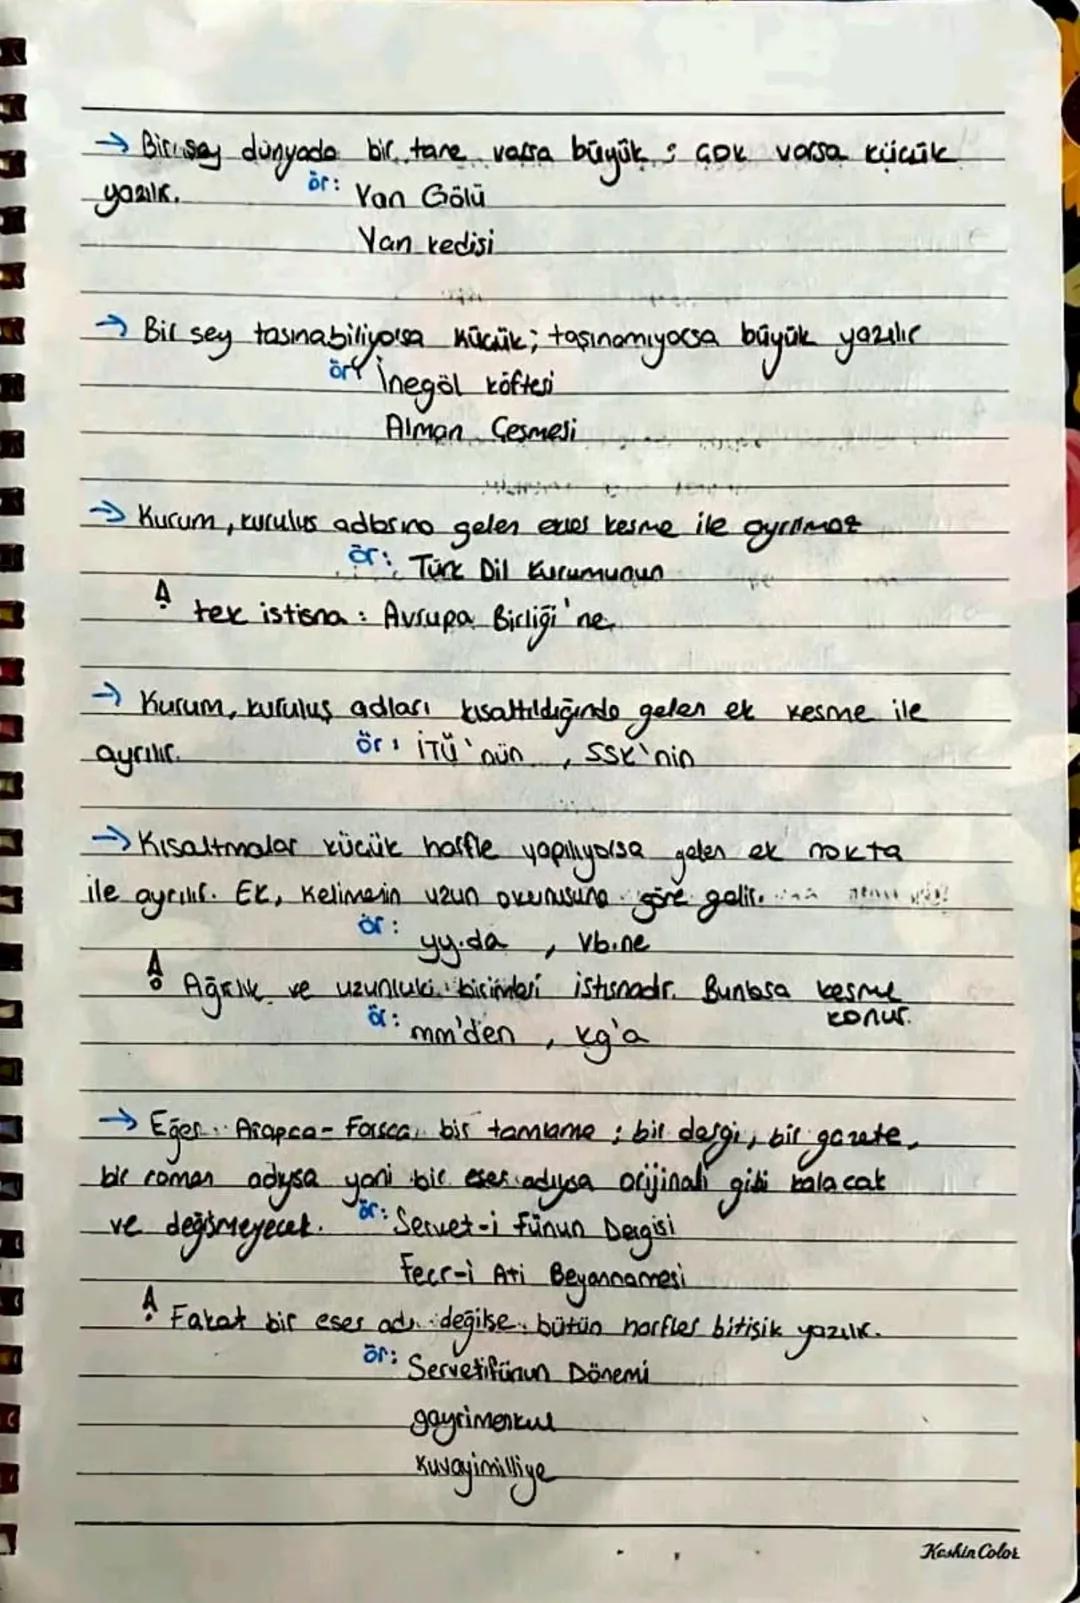 → Bir şey dünyada bir tane varsa büyük ; çok varsa küçük
yazılır. ör: Van Gölü
Van kedisi
→ Bir şey taşınabiliyorsa küçük; taşınamıyorsa büyük yazılır
ör: İnegöl köftesi
Alman Çeşmesi
→ Kurum, kuruluş adlarına gelen ekler kesme ile ayrılmaz
ör: Türk Dil Kurumunun
tek istisna : Avrupa Birliği'ne
→ Kurum, kuruluş adları kısaltıldığında gelen ek kesme ile
ayrılır. ör: İTÜ'nün , SSK'nin
→ Kısaltmalar küçük harfle yapılıyorsa gelen ek nokta
ile ayrılır. Ek, kelimenin uzun okunuşuna göre gelir.
ör: yy.da , vb.ne
Ağırlık ve uzunluk birimleri istisnadır. Bunlara kesme
konur.
ör: mm'den , kg'a
→ Eğer Arapça-Farsça bir tamlama ; bir dergi, bir gazete,
bir roman adıysa yani bir eser adıysa orijinali gibi kalacak
ve değişmeyecek. ör: Servet-i Fünun Dergisi
Fecr-i Ati Beyannamesi
Fakat bir eser adı değilse bütün harfler bitişik yazılır.
ör: Servetifünun Dönemi
gayrimenkul
kuvayimilliye
Keskin Color